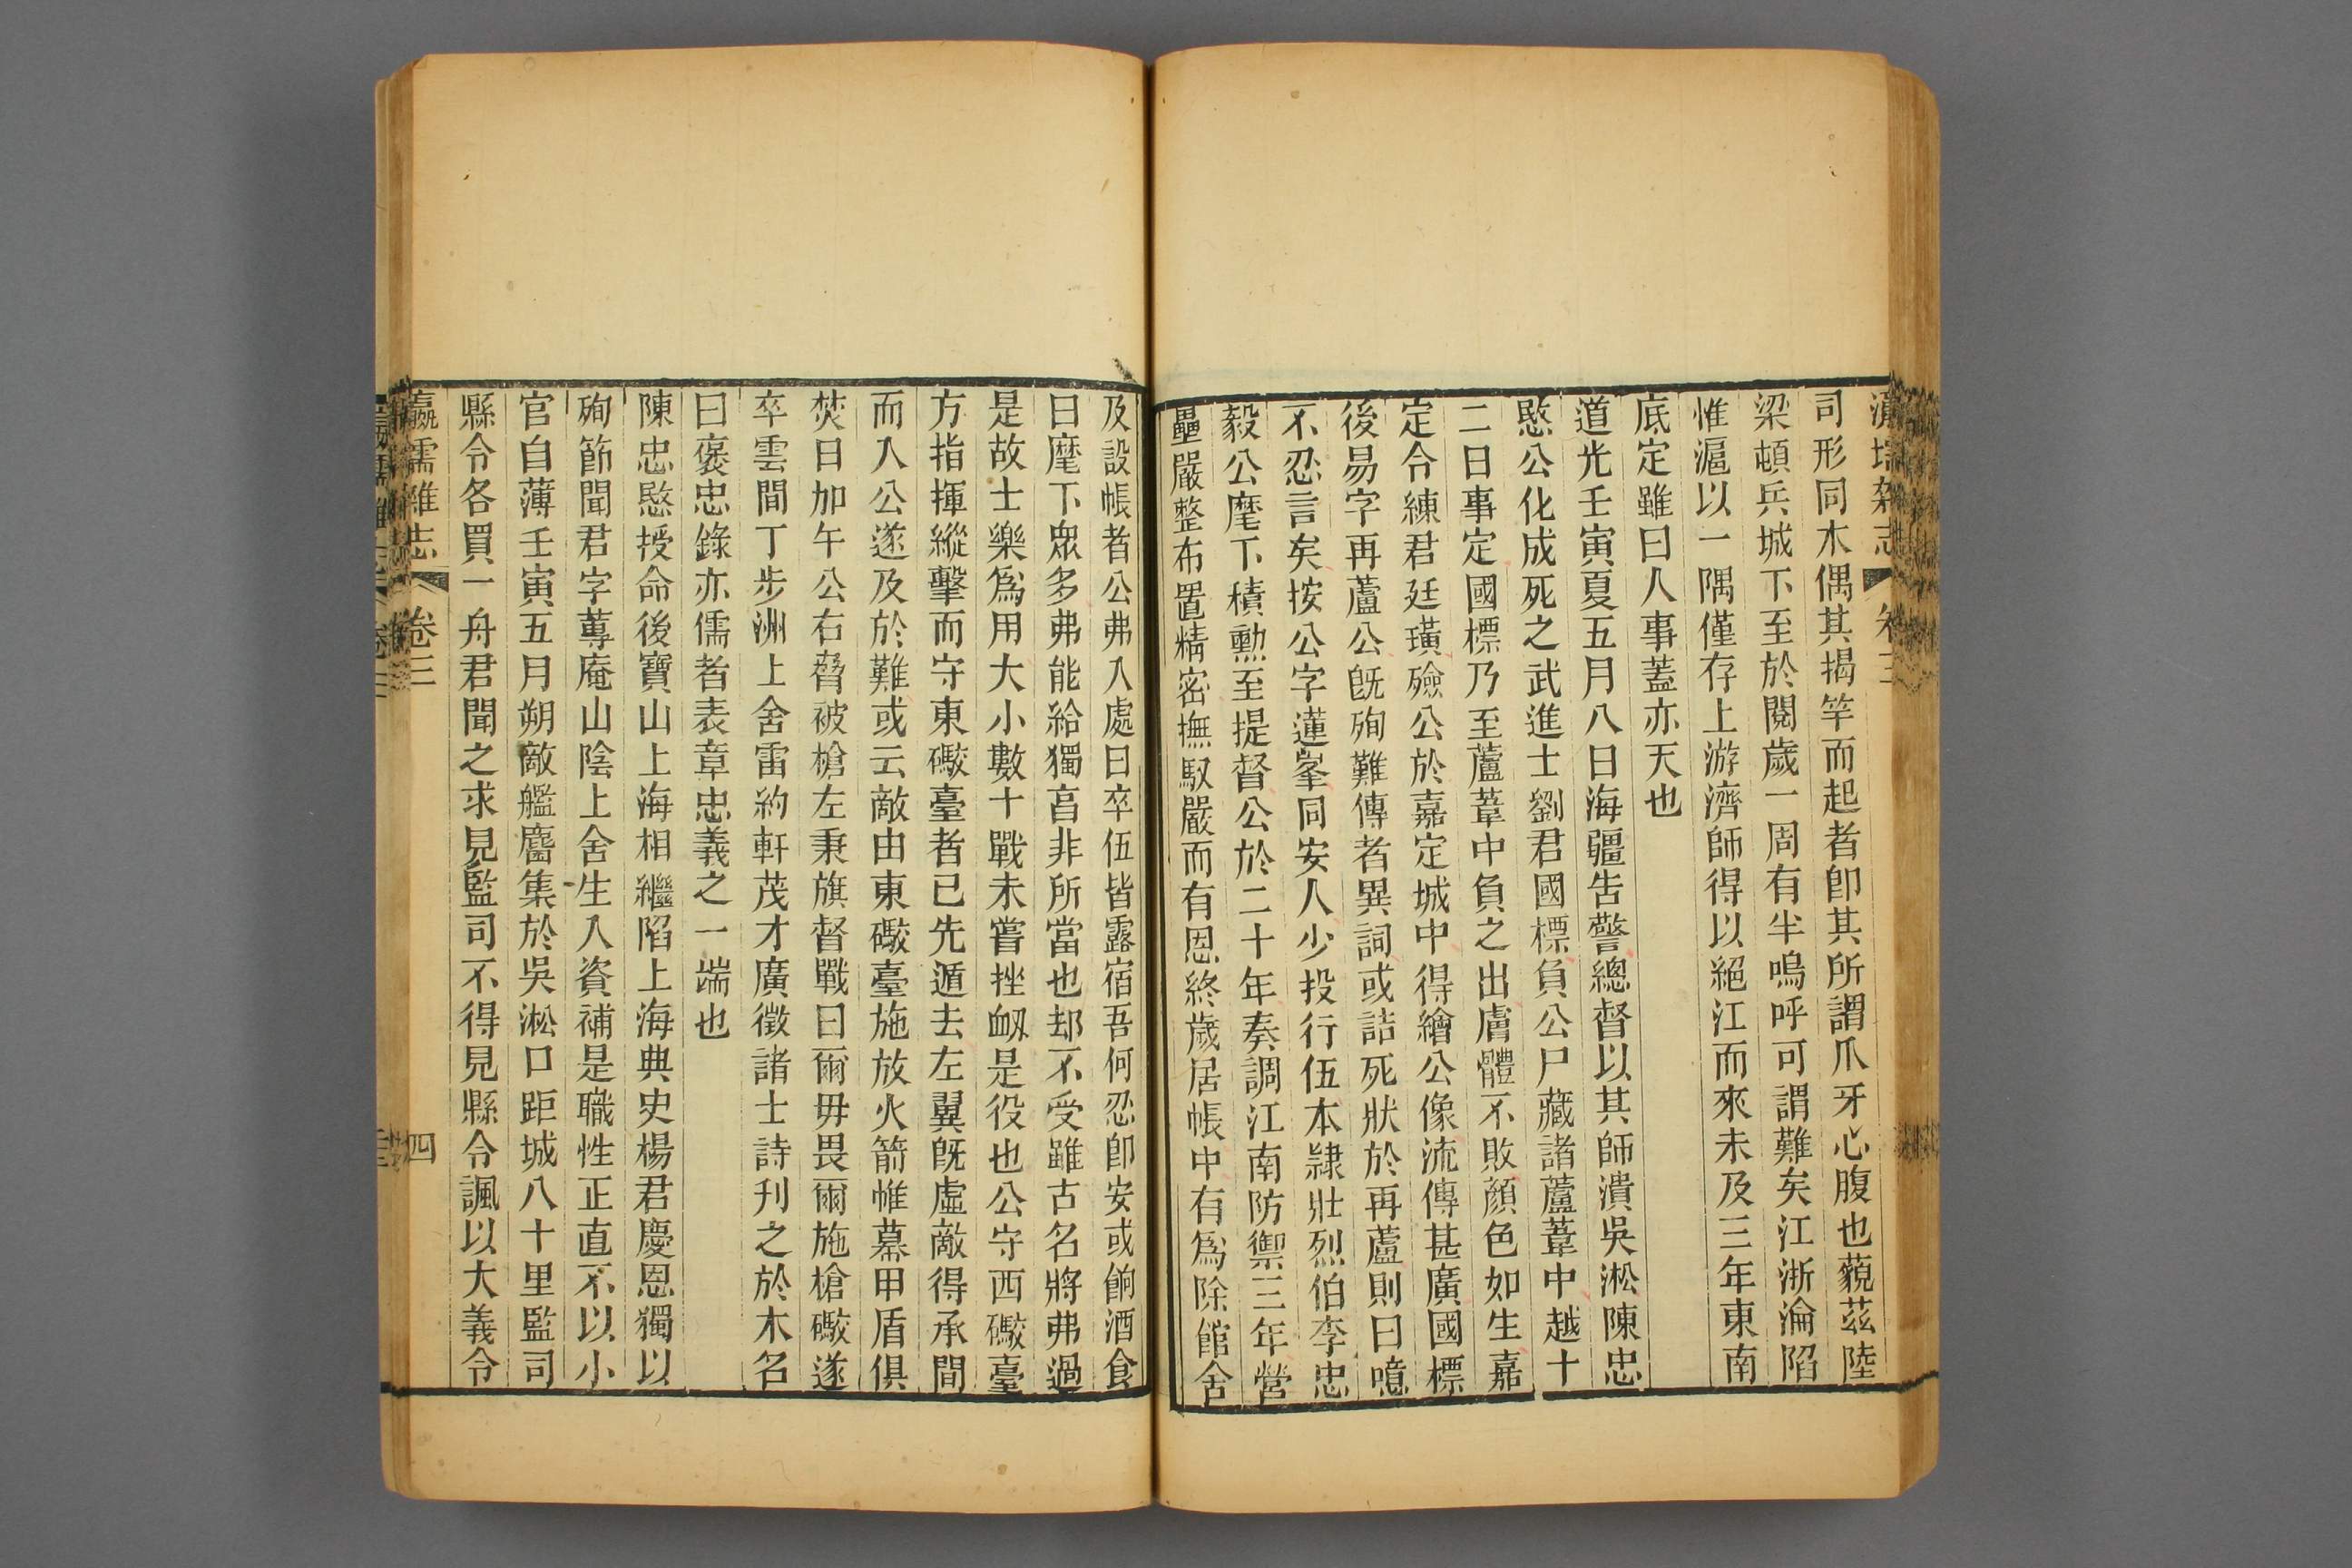 瀛壖雜志 卷三
司形同木偶其揭竿而起者卽其所謂爪牙心腹也藐茲陸
梁頓兵城下至於閱歲一周有半嗚呼可謂難矣江浙淪陷
惟滬以一隅僅存上游濟師得以絕江而來未及三年東南
底定雖曰人事蓋亦天也
道光壬寅夏五月八日海疆吿警總督以其師潰吳淞陳忠
愍公化成死之武進士劉君國標負公尸藏諸蘆葦中越十
二日事定國標乃至蘆葦中負之出膚體不敗顏色如生嘉
定令練君廷璜殮公於嘉定城中得繪公像流傳甚廣國標
後易字再蘆公旣殉難傳者異詞或詰死狀於再蘆則曰噫
不忍言矣按公字蓮峯同安人少投行伍本隸壯烈伯李忠
毅公麾下積勳至提督公於二十年奏調江南防禦三年營
壘嚴整布置精密撫馭嚴而有恩終歲居帳中有爲除館舍
及設帳者公弗入處曰卒伍皆露宿吾何忍卽安或餉酒食
曰麾下眾多弗能給獨亯非所當也却不受雖古名將弗過
是故士樂爲用大小數十戰未嘗挫衂是役也公守西礮臺
方指揮縱擊而守東礮臺者已先遁去左翼旣虛敵得承間
而入公遂及於難或云敵由東礮臺施放火箭帷幕甲盾俱
焚日加午公右脅被槍左秉旗督戰曰爾毋畏爾施槍礮遂
卒雲間丁步洲上舍雷約軒茂才廣徵諸士詩刋之於木名
曰褒忠錄亦儒者表章忠義之一端也
陳忠愍授命後寶山上海相繼陷上海典史楊君慶恩獨以
殉節聞君字蓴庵山陰上舍生入資補是職性正直不以小
官自薄壬寅五月朔敵艦麕集於吳淞口距城八十里監司
縣令各買一舟君聞之求見監司不得見縣令諷以大義令
瀛壖雜志 卷三 四